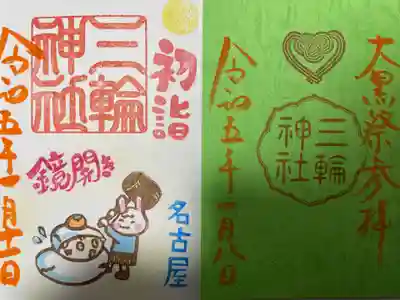 初詣
三輪
神社
令和五年一月十一日
鏡開き
名古屋
大黒祭参拝
三輪
神社
令和五年一月八日